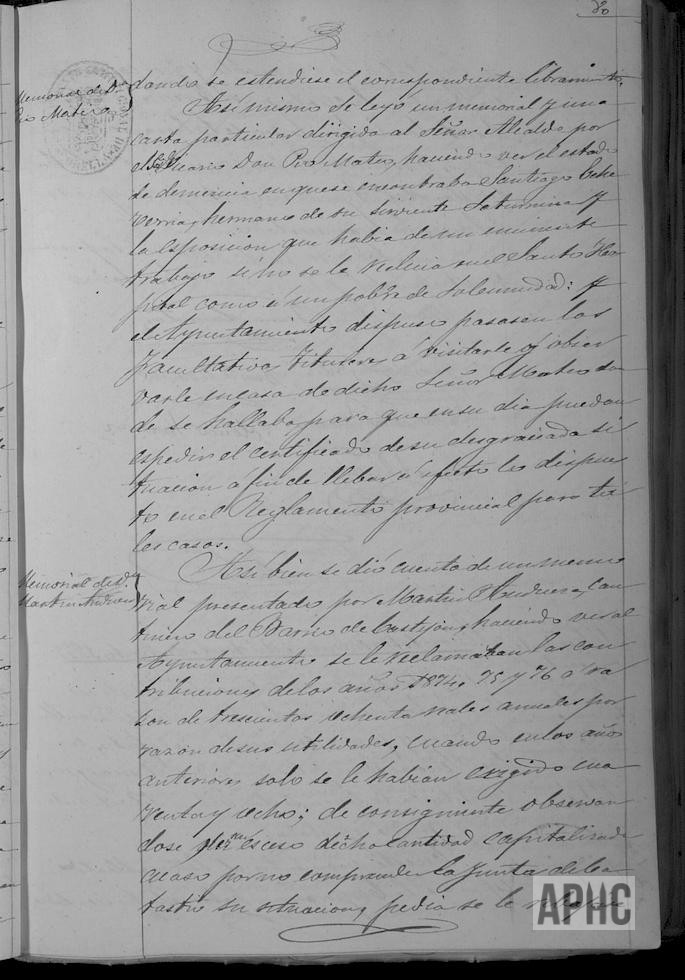 80
dando se estendiese el correspondiente libramiento.
Memorial de D.
Pio Mateo
Asi mismo se leyo un memorial y una
carta particular dirigida al Señor Alcalde por
el Don Pio Mateo, haciendo ver el estado
de demencia en que se encontraba Santiago Eche
verria, hermano de su sirviente Saturnina y
la esposicion que habia de un eminente
trabajo si no se le recluia en el Santo Hos
pital como á un pobre de Solemnidad: y
el Ayuntamiento dispuso pasasen los
facultativos titulares á visitarle y obser
varle en casa de dicho Señor Mateo don
de se hallaba para que en su dia puedan
espedir el certificado de su desgraciada si
tuacion a fin de llebar á efecto lo dispues
to en el Reglamento provincial para ta
les casos.
Memorial de D.
Martin Andueza
Asi bien se dió cuenta de un memo
rial presentado por Martin Andueza, can
tinero del Barrio de Castejon, haciendo ver al
Ayuntamiento se le reclamaban las con
tribuciones de los años 1874, 75 y 76 á ra
zon de trescientos ochenta reales anuales por
razon de sus utilidades, cuando en los años
anteriores solo se le habian exigido cua
renta y ocho; de consiguiente observan
dose esceso dicha cantidad capitalizada
acaso por no comprender la Junta de Ca
tastro su situacion, pedia se le
APHC